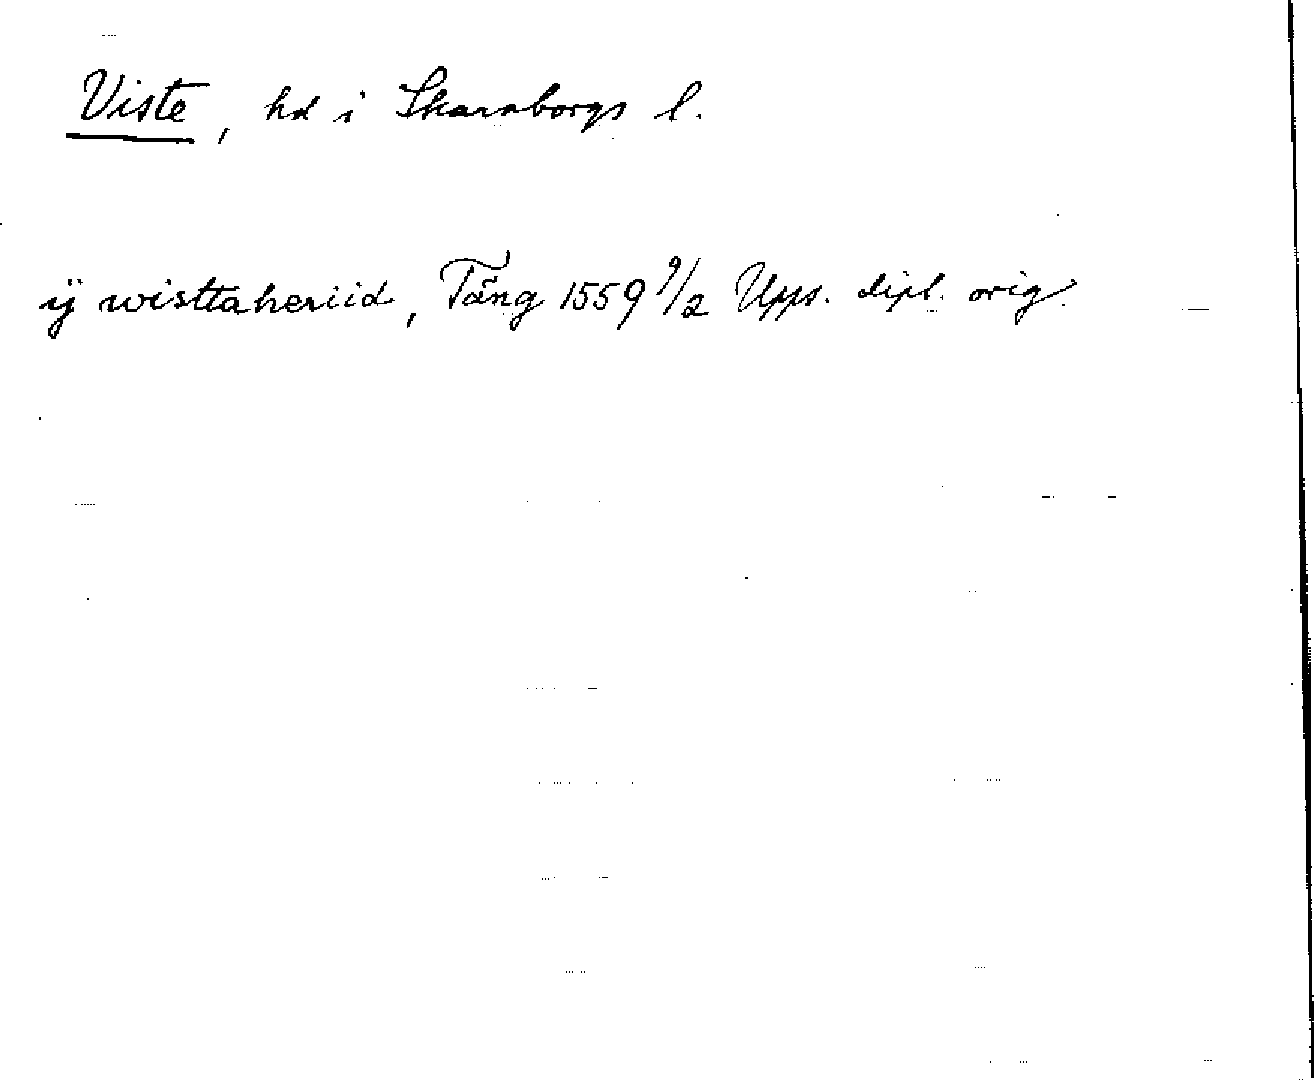 Viste, hd i Skaraborgs l.
ÿ wisttaheriid, Tång 1559 9/2 Upps. dipl. orig.